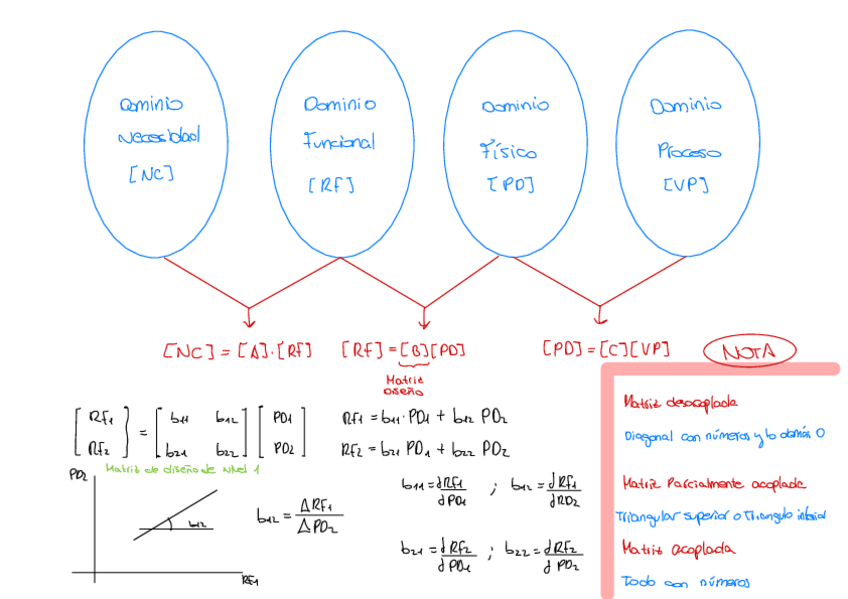 Dominio
Necesidad
[NC]
Dominio
Funcional
[RF]
Dominio
Físico
[PD]
Dominio
Proceso
[VP]
[NC] = [A]·[RF]
[RF] = [B][PD]
Matriz
Diseño
[PD] = [C][VP]
NOTA
[RF1 RF2] = [b11 b12 b21 b22] [PD1 PD2]
RF1 = b11·PD1 + b12 PD2
RF2 = b21 PD1 + b22 PD2
Matriz de diseño de Nivel 1
PD2
b12
RF1
b12 = ΔRF1 / ΔPD2
b11 = dRF1 / dPD1 ; b12 = dRF1 / dPD2
b21 = dRF2 / dPD1 ; b22 = dRF2 / dPD2
Matriz desacoplada
Diagonal con números y lo demás 0
Matriz Parcialmente acoplada
Triangular superior o Triangulo inferior
Matriz acoplada
Todo con números